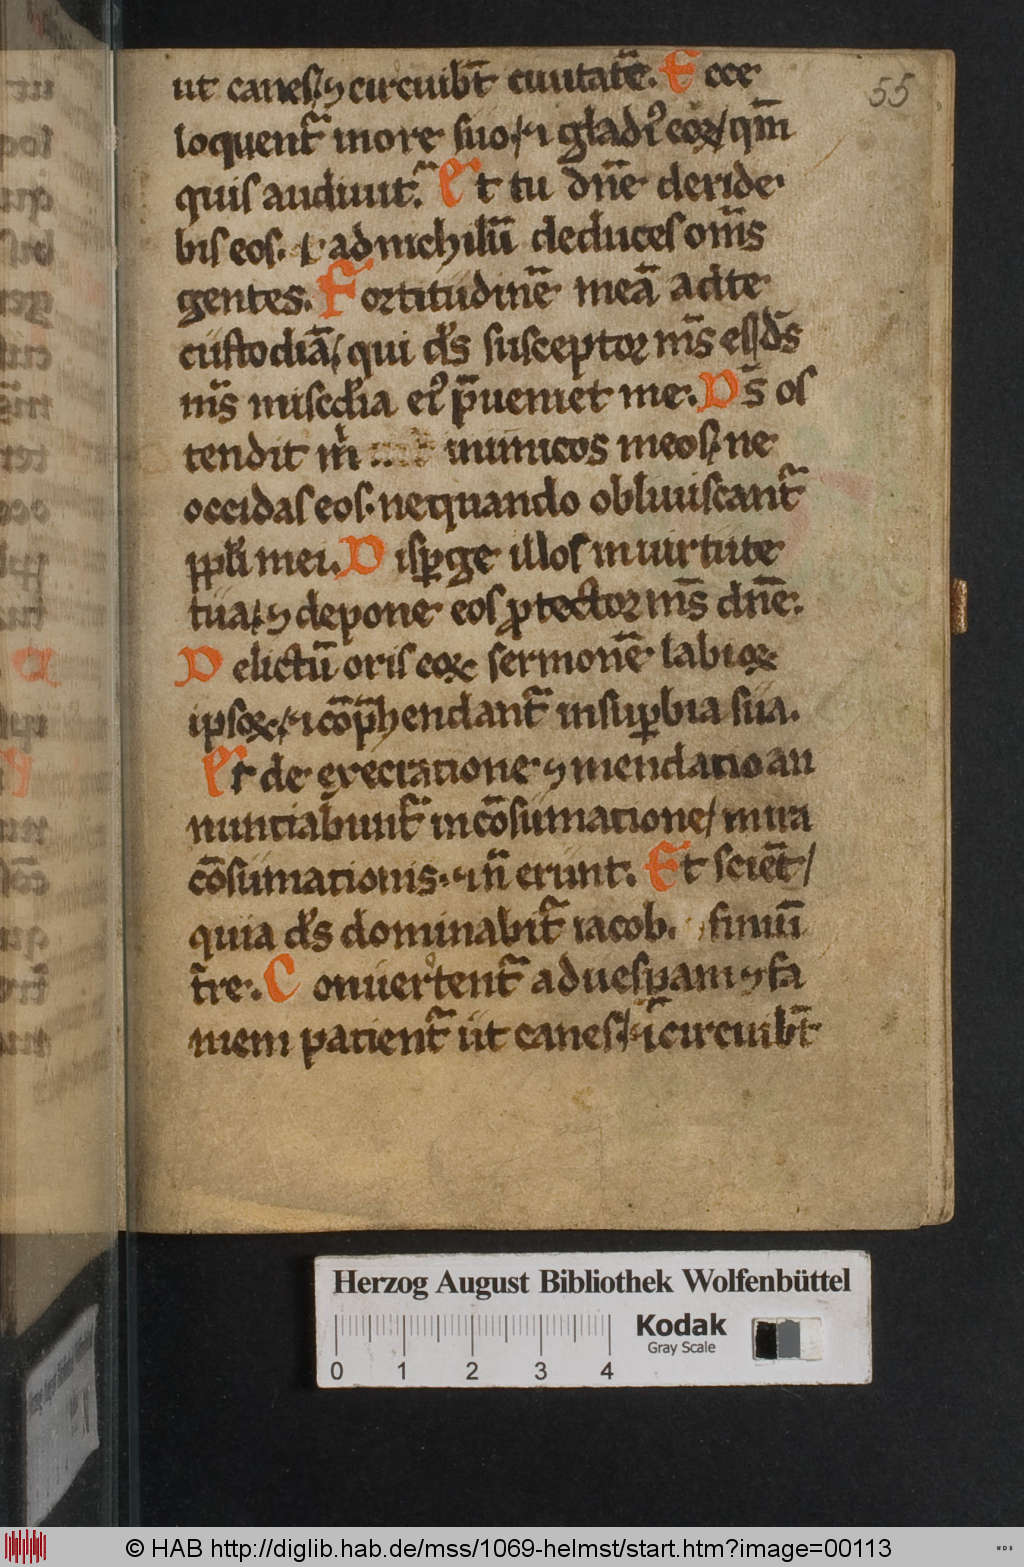 ut canes / ⁊ circuibt̄ ciuitatē. Ecce
55
loquent᷑ more suo / ⁊ i gladiꝰ eoꝝ / qm̄
quis audiuit᷑. Et tu dn̄e deride
bis eos. ⁊ ad nichilū deduces om̄s
gentes. Fortitudinē meā ad te
custodiā / qui ds̄ susceptor ms̄ es / ds̄
ms̄ misc̄dia eiꝰ p̄ueniet me. Ds̄ os
tendit m̄ inimicos meos / ne
occidas eos. nequando obliuiscant᷑
ppl̄i mei. Disꝑge illos in uirtute
tua / ⁊ depone eos ꝓtector ms̄ dn̄e.
Delictū oris eoꝝ sermonē labioꝝ
ipsoꝝ / ⁊ cōp̄hendant᷑ in suꝑbia sua.
Et de execratione ⁊ mendatio an
nuntiabunt᷑ in cōsumatione / in ira
cōsumationis. ⁊ n̄ erunt. Et scient̄ /
quia ds̄ dominabit᷑ iacob. finiū
tr̄re. Conuertent᷑ ad uespam ⁊ fa
mem patient᷑ ut canes / ⁊ circuibt̄
Herzog August Bibliothek Wolfenbüttel
Kodak
Gray Scale
0 1 2 3 4
© HAB http://diglib.hab.de/mss/1069-helmst/start.htm?image=00113